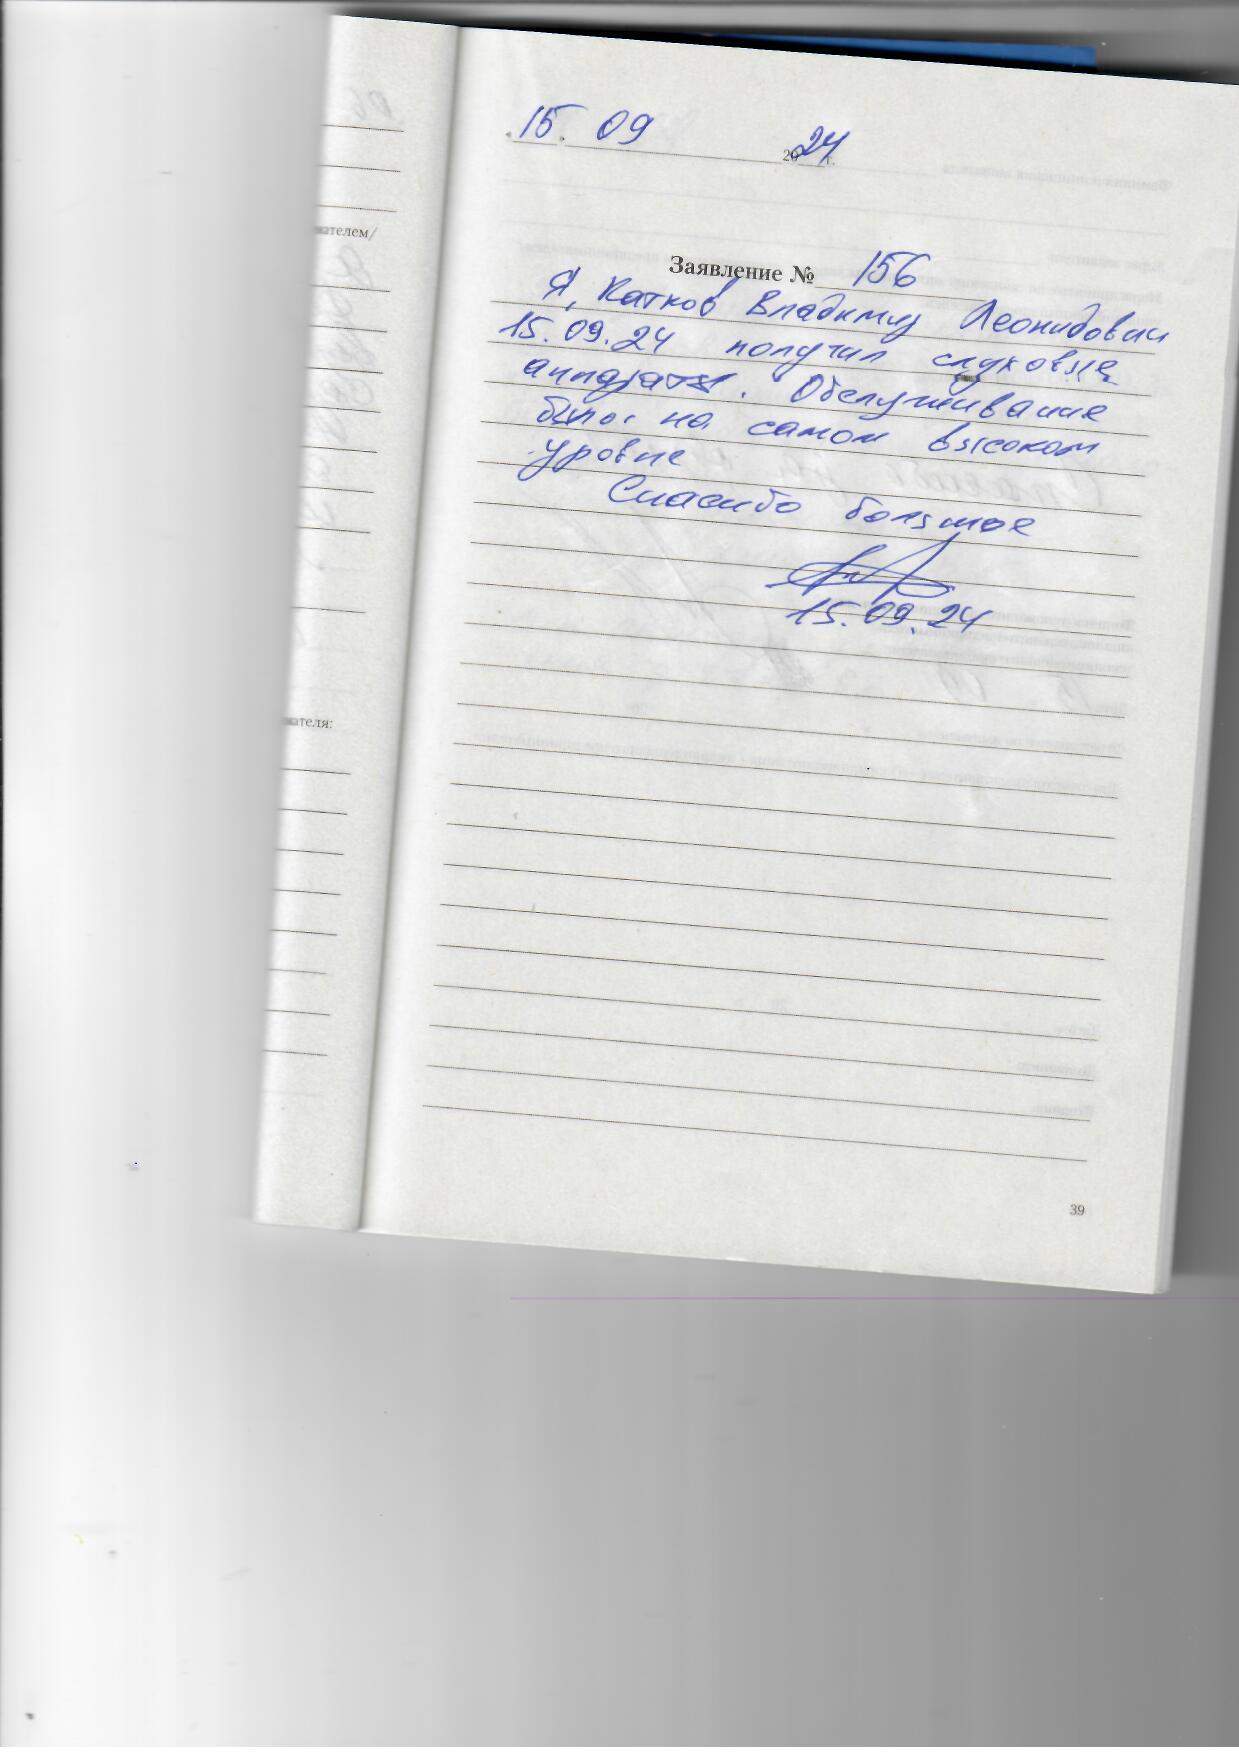 "15" 09 2024 г.
Заявление № 156
Я, Катков Владимир Леонидович
15.09.24 получил слуховые
аппараты. Обслуживание
было на самом высоком
уровне
Спасибо большое
15.09.24
ателем/
ателя:
39